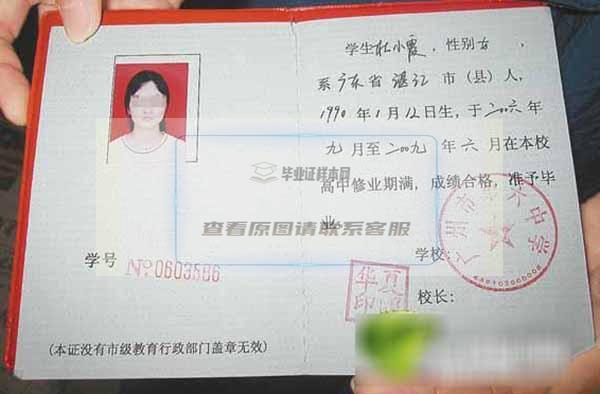 学号
No 0603586
(本证没有市级教育行政部门盖章无效)
学生杜小霞,性别女,
系广东省湛江市(县)人,
1990年1月12日生,于二00六年
九月至二00九年六月在本校
高中修业期满,成绩合格,准予毕
业
学校:
校长:
毕业证样本网
查看原图请联系客服